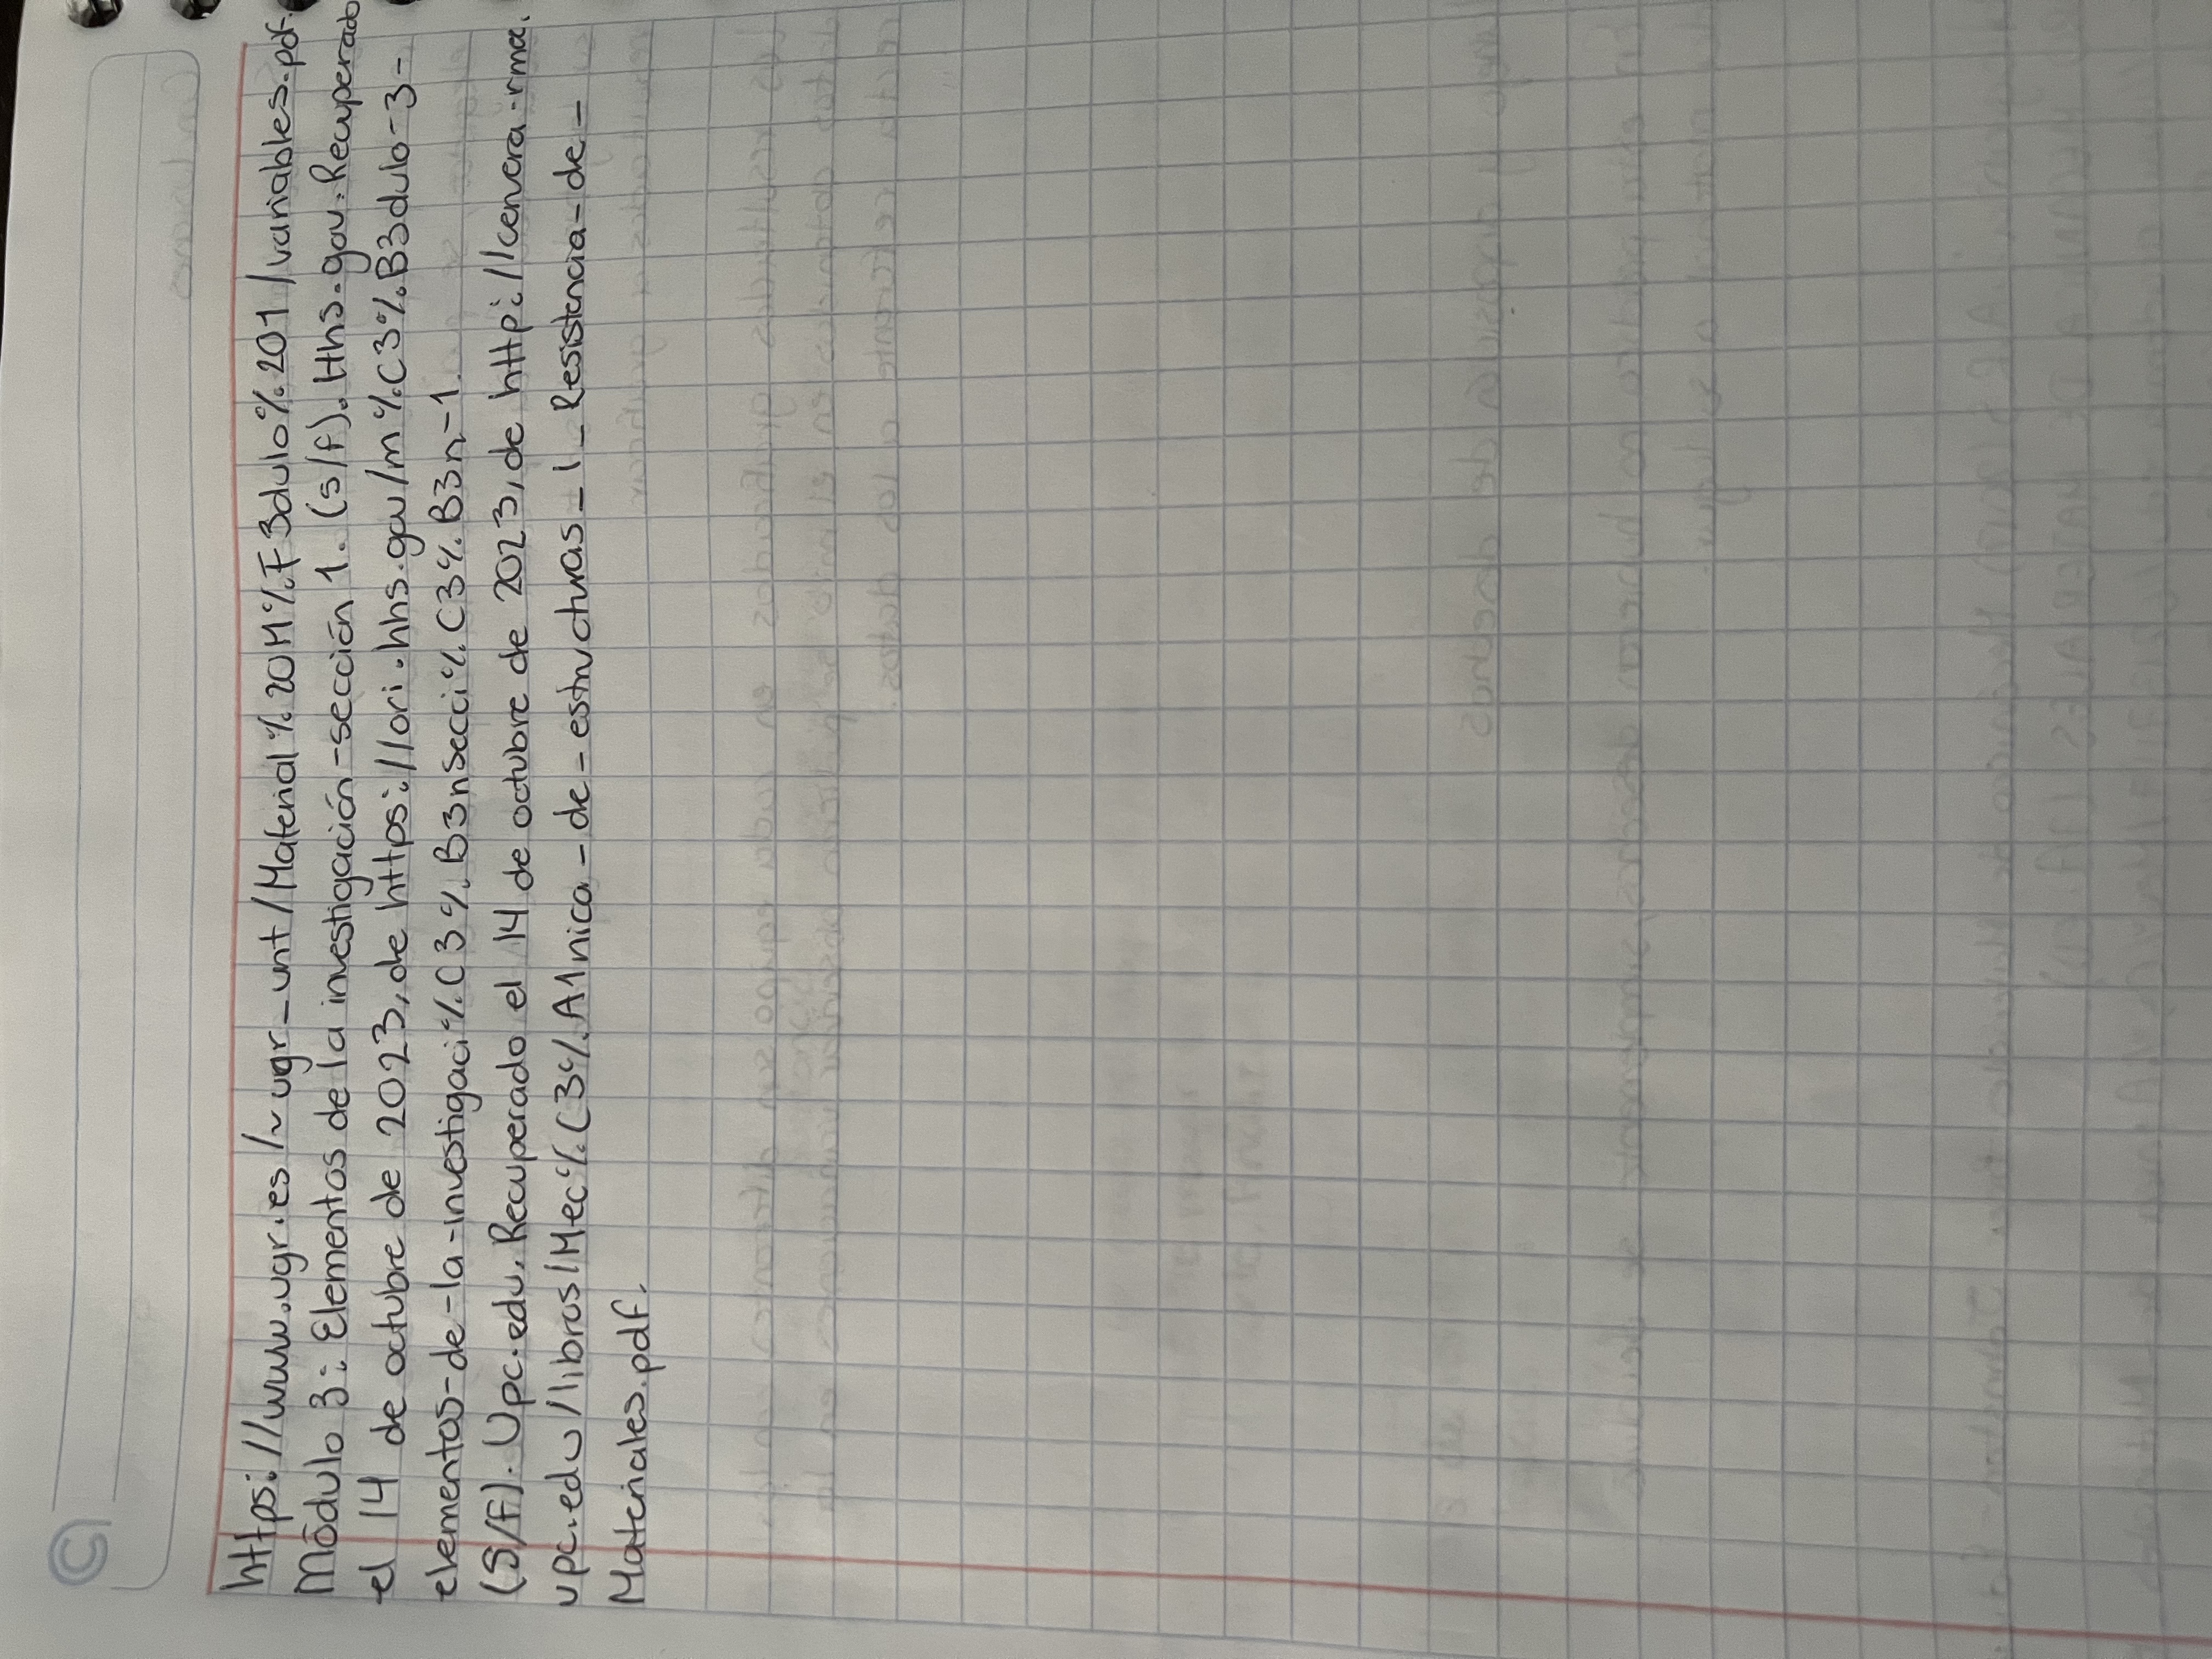 https://www.ugr.es/~ugr_unt/Material%20M%F3dulo%201/variables.pdf.
Módulo 3: Elementos de la investigación-sección 1. (s/f). Hhs.gov. Recuperado
el 14 de octubre de 2023, de https://ori.hhs.gov/m%C3%B3dulo-3-
elementos-de-la-investigaci%C3%B3nSecci%C3%B3n-1.
(S/f). Upc.edu. Recuperado el 14 de octubre de 2023, de http://cervera.rmee.
upc.edu/libros/Mec%C3%A1nica-de-estructuras_1_Resistencia-de-
Materiales.pdf.